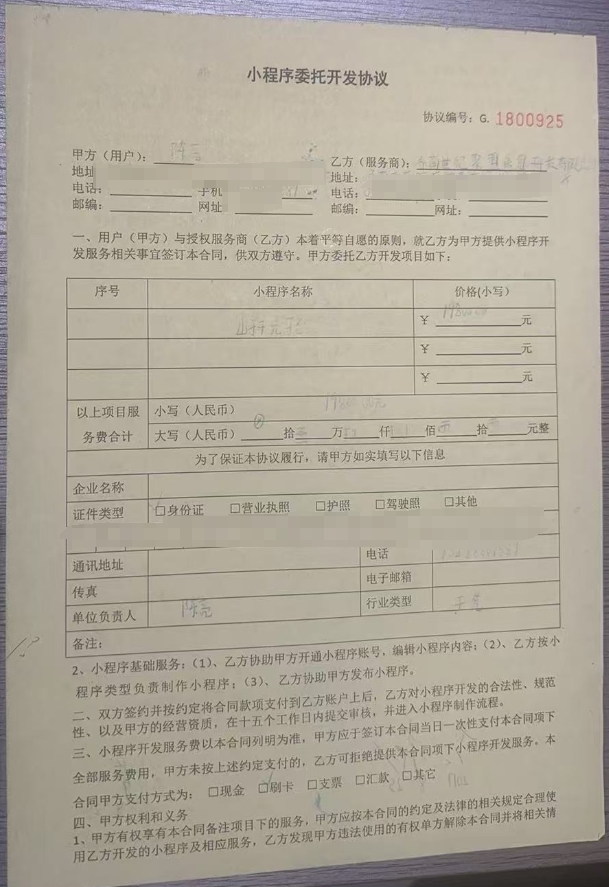 小程序委托开发协议
协议编号：G. 1800925
甲方（用户）： 乙方（服务商）：
地址 地址：
电话： 手机 电话：
邮编： 网址 邮编： 网址：
一、用户（甲方）与授权服务商（乙方）本着平等自愿的原则，就乙方为甲方提供小程序开
发服务相关事宜签订本合同，供双方遵守。甲方委托乙方开发项目如下：
序号 小程序名称 价格(小写)
¥ 元
¥ 元
¥ 元
以上项目服 小写（人民币）
务费合计 大写（人民币） 拾 万 仟 佰 拾 元整
为了保证本协议履行，请甲方如实填写以下信息
企业名称
证件类型 □身份证 □营业执照 □护照 □驾驶照 □其他
通讯地址 电话
传真 电子邮箱
单位负责人 陈亮 行业类型
备注：
2、小程序基础服务：（1）、乙方协助甲方开通小程序账号、编辑小程序内容；（2）、乙方按小
程序类型负责制作小程序；（3）、乙方协助甲方发布小程序。
二、双方签约并按约定将合同款项支付到乙方账户上后，乙方对小程序开发的合法性、规范
性、以及甲方的经营资质，在十五个工作日内提交审核，并进入小程序制作流程。
三、小程序开发服务费以本合同列明为准，甲方应于签订本合同当日一次性支付本合同项下
全部服务费用，甲方未按上述约定支付的，乙方可拒绝提供本合同项下小程序开发服务。本
合同甲方支付方式为： □现金 □刷卡 □支票 □汇款 □其它
四、甲方权利和义务
1、甲方有权享有本合同备注项目下的服务，甲方应按本合同的约定及法律的相关规定合理使
用乙方开发的小程序及相应服务，乙方发现甲方违法使用的有权单方解除本合同并将相关情